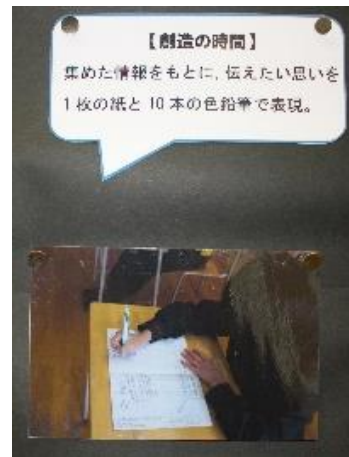 【創造の時間】
集めた情報をもとに、伝えたい思いを
1枚の紙と10本の色鉛筆で表現。